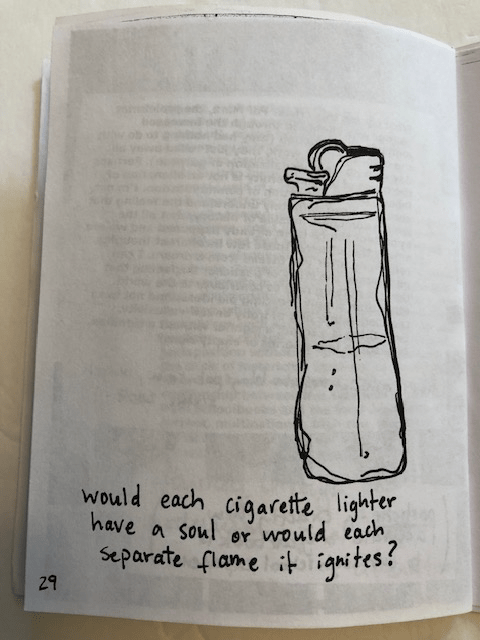 would each cigarette lighter
have a soul or would each
separate flame it ignites?
29